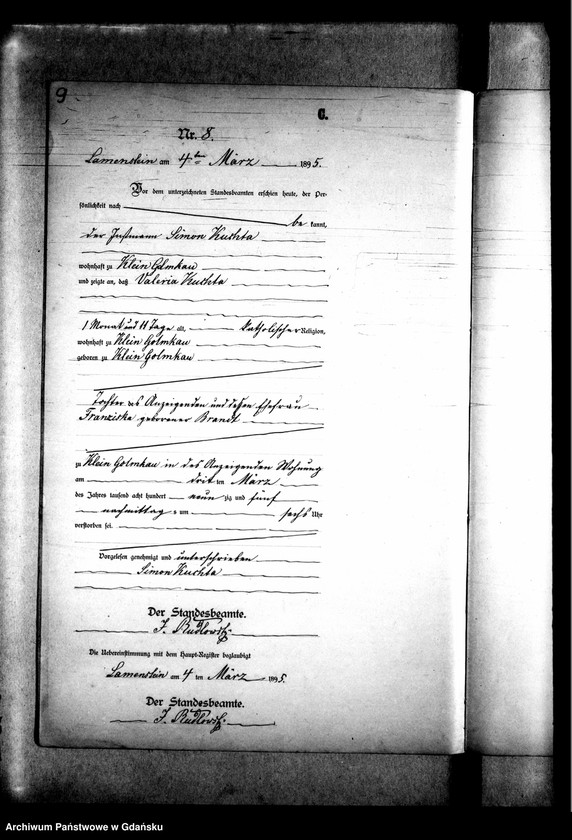 9
C.
Nr. 8.
Lamenstein am 4ten März 1895.
Vor dem unterzeichneten Standesbeamten erschien heute, der Per-
sönlichkeit nach
be kannt,
der Instmann Simon Kuchta
wohnhaft zu Klein Golmkau
und zeigte an, daß Valeria Kuchta
1 Monat und 11 Tage alt, katholischer Religion,
wohnhaft zu Klein Golmkau
geboren zu Klein Golmkau
Tochter des Anzeigenden und dessen Ehefrau
Franziska geborener Brandt
zu Klein Golmkau in des Anzeigenden Wohnung
am dritten März
des Jahres tausend acht hundert neun zig und fünf
nachmittag s um sechs Uhr
verstorben sei.
Vorgelesen genehmigt und unterschrieben
Simon Kuchta
Der Standesbeamte.
J.
Die Uebereinstimmung mit dem Haupt-Register beglaubigt
Lamenstein am 4 ten März 1895.
Der Standesbeamte.
J.
Archiwum Państwowe w Gdańsku